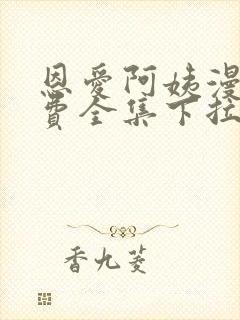 恩愛阿姨漫
費全集下拉
香九菱